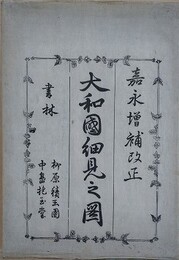 嘉永增補改正
大和國細見之圖
書林
柳原積玉圃
中島抱玉堂